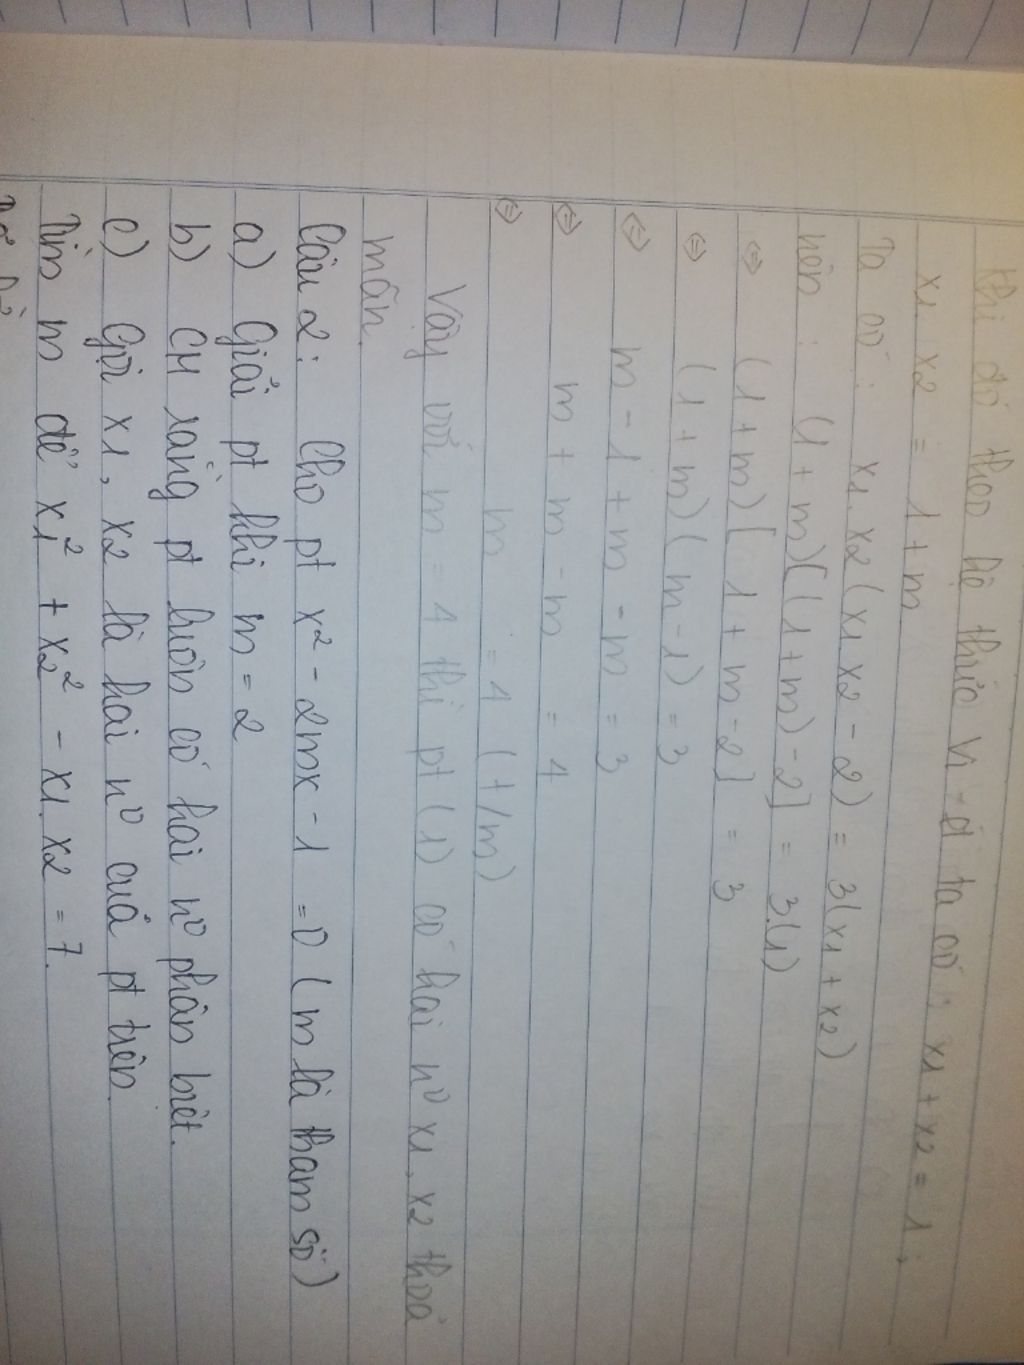 Khi đó theo hệ thức Vi-ét ta có: x1 + x2 = 1;
x1 x2 = 1+m
Ta có: x1.x2 (x1 x2 - 2) = 3(x1 + x2)
nên: (1+m)[(1+m)-2] = 3.(1)
⇔ (1+m)[1+m-2] = 3
⇔ (1+m)(m-1) = 3
⇔ m-1+m-m = 3
⇔ m+m-m = 4
⇔ m = 4 (t/m)
Vậy với m = 4 thì pt (1) có hai n⁰ x1, x2 thoả
mãn.
Câu 2: Cho pt x² - 2mx - 1 = 0 (m là tham số)
a) Giải pt khi m = 2
b) CM rằng pt luôn có hai n⁰ phân biệt.
c) Gọi x1, x2 là hai n⁰ của pt trên.
Tìm m để x1² + x2² - x1.x2 = 7.